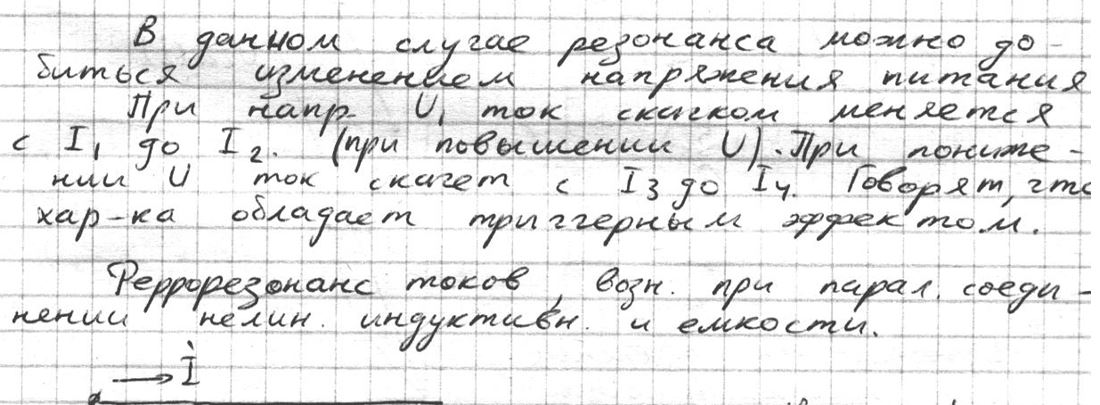 В данном случае резонанса можно до-
биться изменением напряжения питания
При напр. U₁ ток скачком меняется
с I₁ до I₂. (при повышении U). При пониже-
нии U ток скачет с I₃ до I₄. Говорят, что
хар-ка обладает триггерным эффектом.
Феррорезонанс токов, возн. при парал. соеди-
нении нелин. индуктивн. и емкости.
İ